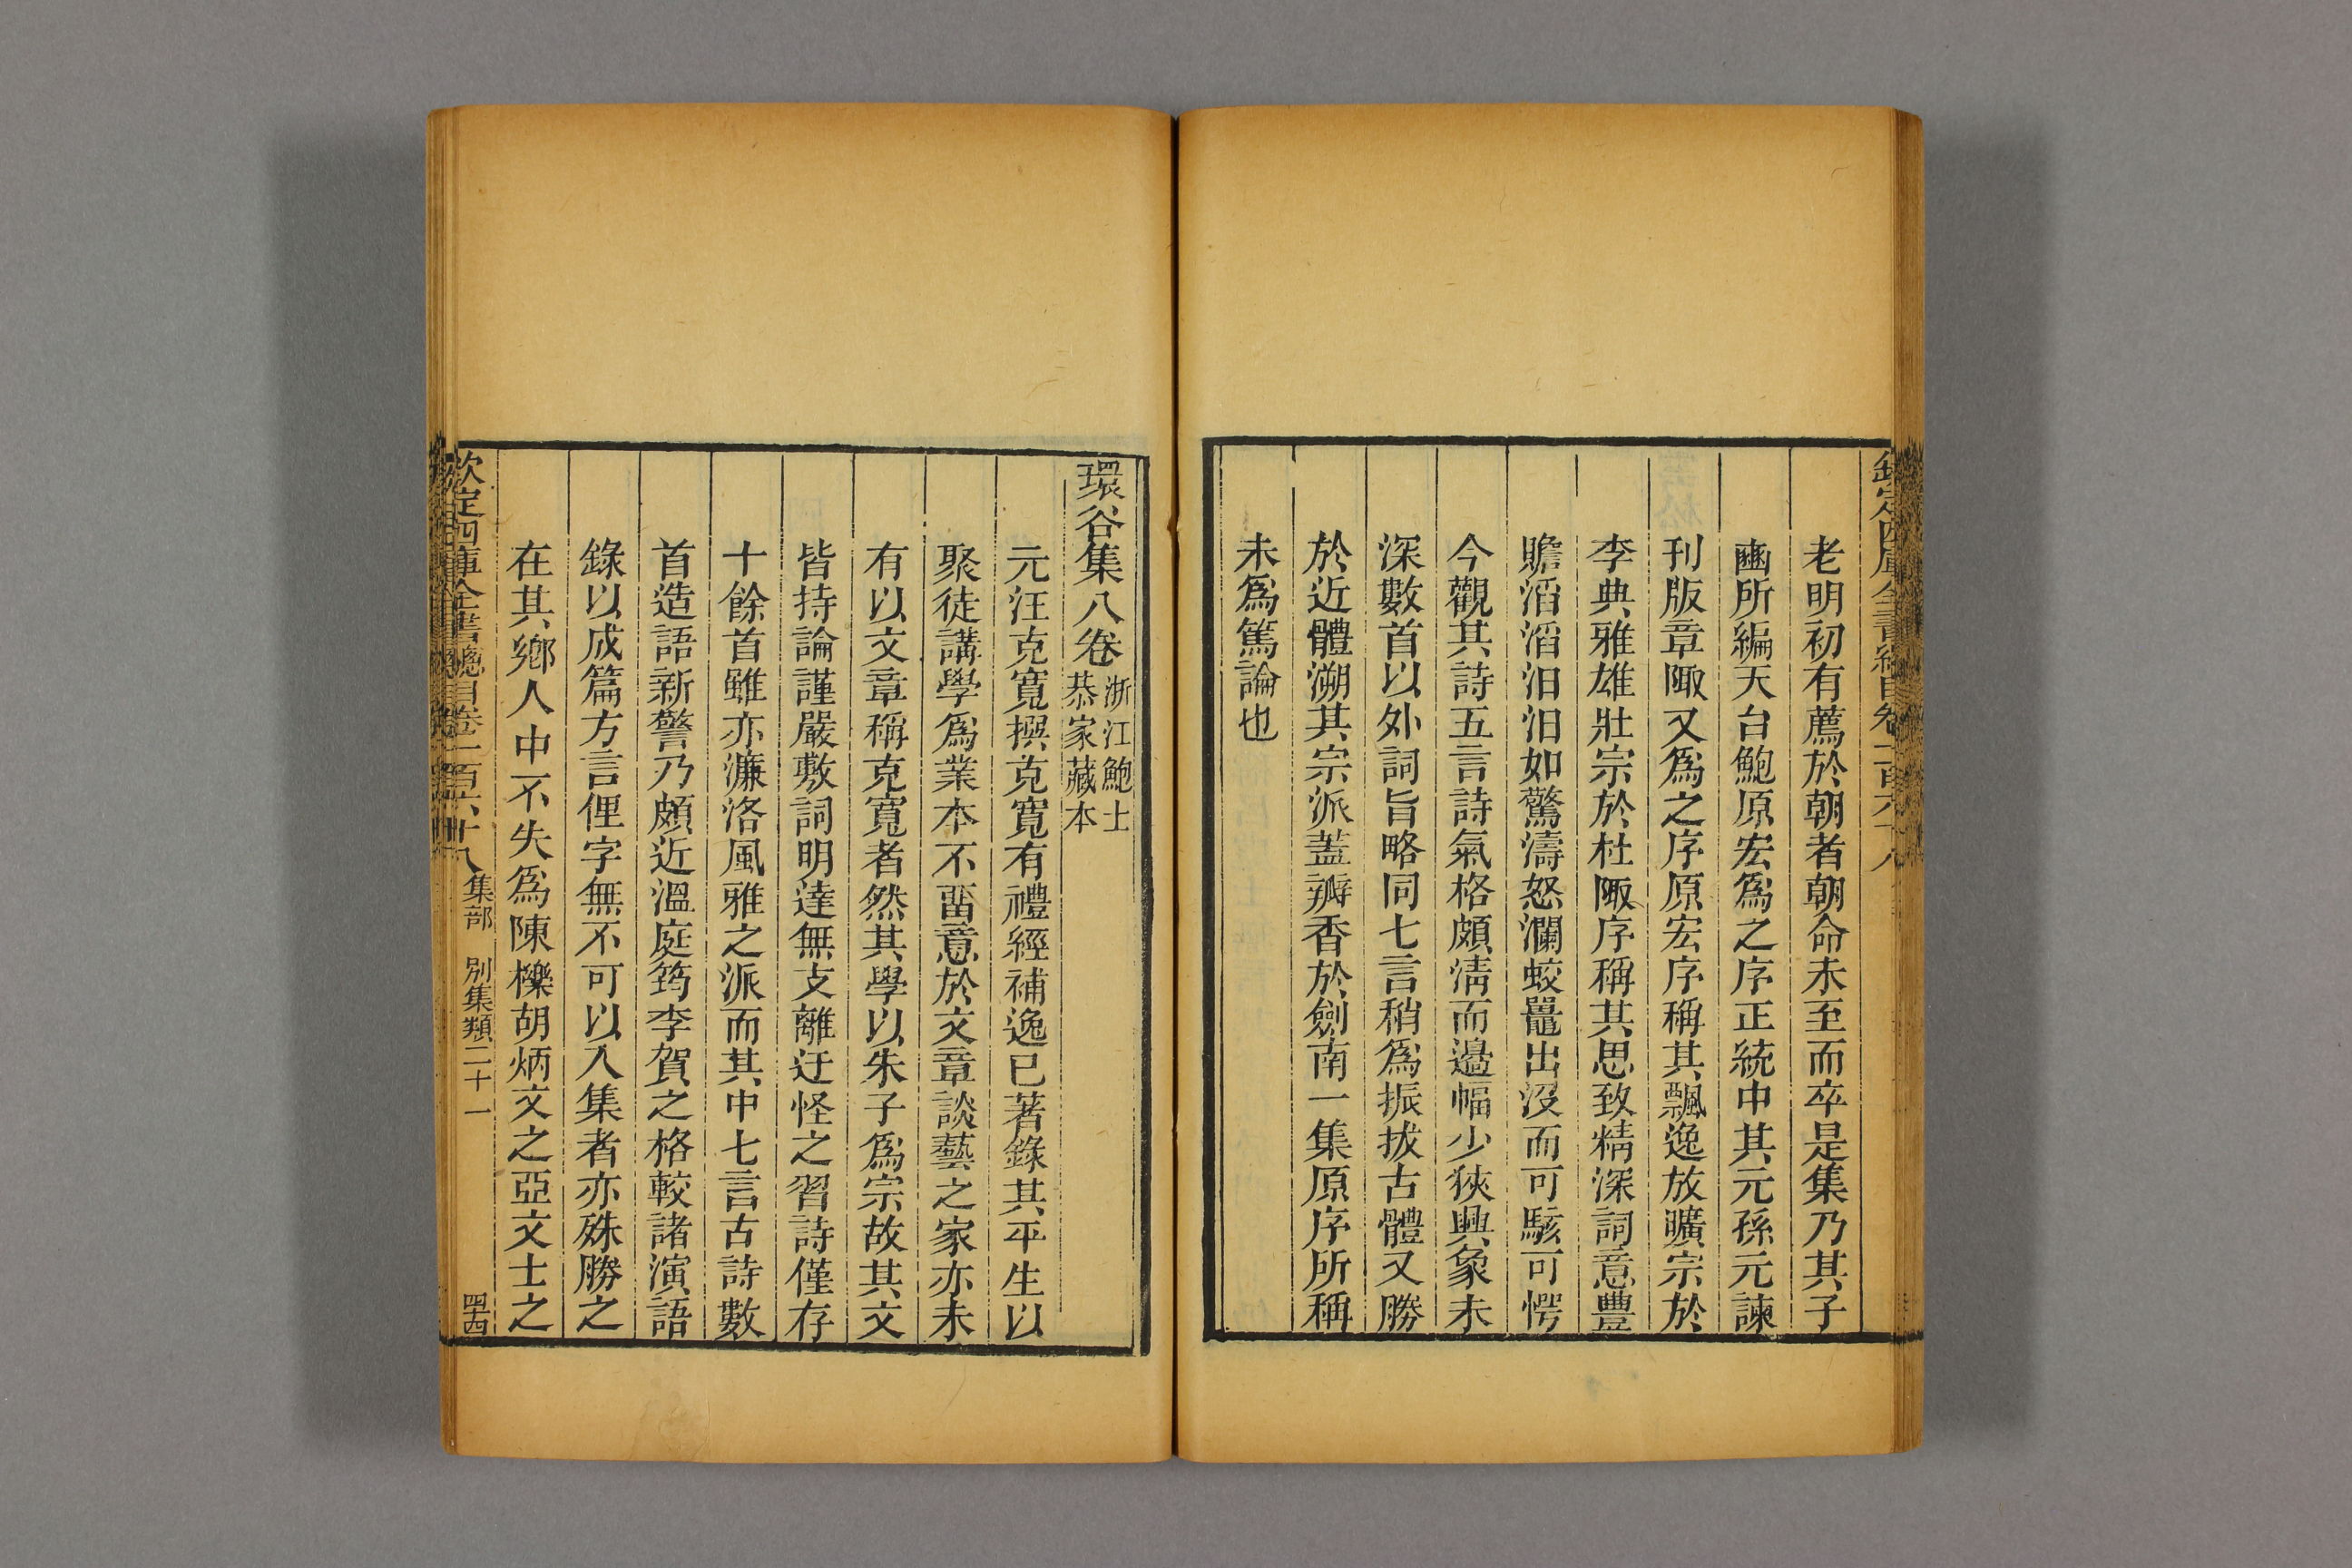 欽定四庫全書總目卷一百六十八
老明初有薦於朝者朝命未至而卒是集乃其子
齒所編天台鮑原宏爲之序正統中其元孫元諫
刊版章陬又爲之序原宏序稱其飄逸放曠宗於
李典雅雄壯宗於杜陬序稱其思致精深詞意豐
贍滔滔汨汨如驚濤怒瀾蛟鼉出沒而可駭可愕
今觀其詩五言詩氣格頗淸而邊幅少狹興象未
深數首以外詞旨略同七言稍爲振拔古體又勝
於近體溯其宗派蓋瓣香於劍南一集原序所稱
未爲篤論也
環谷集八卷浙江鮑士恭家藏本
元汪克寬撰克寬有禮經補逸已著錄其平生以
聚徒講學爲業本不畱意於文章談藝之家亦未
有以文章稱克寬者然其學以朱子爲宗故其文
皆持論謹嚴敷詞明達無支離迂怪之習詩僅存
十餘首雖亦濂洛風雅之派而其中七言古詩數
首造語新警乃頗近溫庭筠李賀之格較諸演語
錄以成篇方言俚字無不可以入集者亦殊勝之
在其鄉人中不失爲陳櫟胡炳文之亞文士之
欽定四庫全書總目卷一百六十八 集部 別集類二十一 四十四